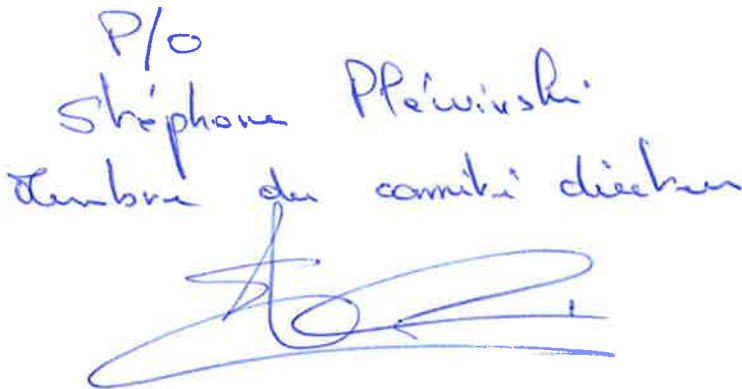 P/O
Stéphane Pléwinski
Membre du comité directeur